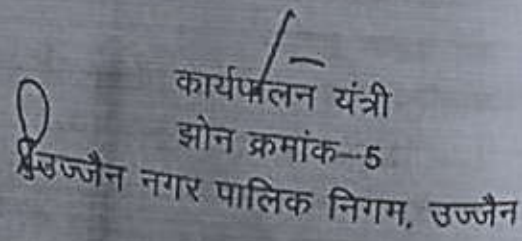 कार्यपालन यंत्री
झोन क्रमांक-5
उज्जैन नगर पालिक निगम, उज्जैन